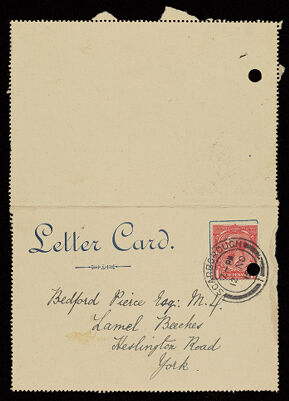 Letter Card.
SCARBOROUGH
Bedford Pierce Esq: M.D.
Lamel Beeches
Heslington Road
York.